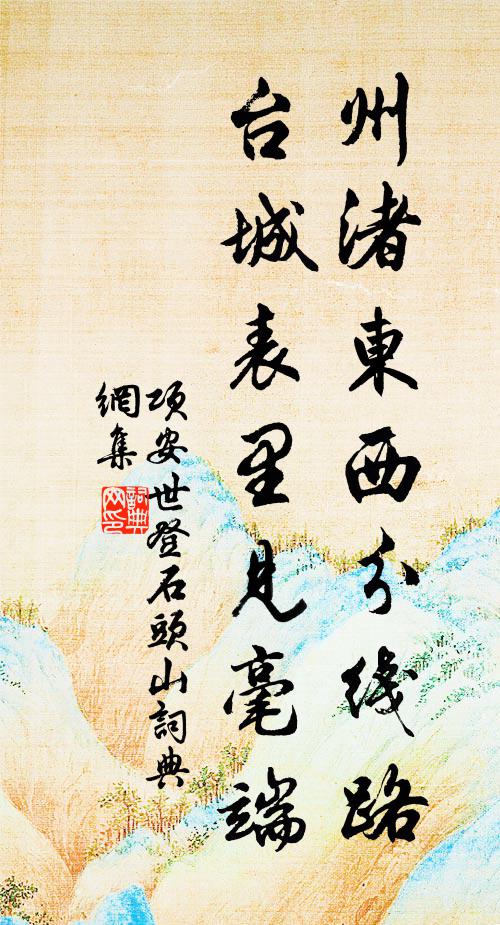 州渚東西分綫路
台城表里見毫端
項安世登石頭山詞典
網集
詞典
网印